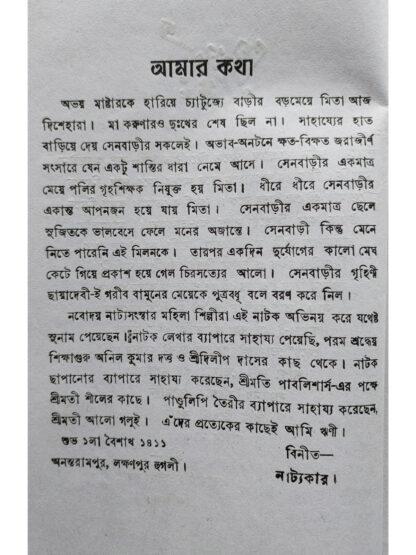 আমার কথা
অভয় মাষ্টারকে হারিয়ে চ্যাটুজ্যে বাড়ীর বড়মেয়ে মিতা আজ
দিশেহারা। মা করুণারও দুঃখের শেষ ছিল না। সাহায্যের হাত
বাড়িয়ে দেয় সেনবাড়ীর সকলেই। অভাব-অনটনে ক্ষত-বিক্ষত জরাজীর্ণ
সংসারে যেন একটু শান্তির ধারা নেমে আসে। সেনবাড়ীর একমাত্র
মেয়ে পলির গৃহশিক্ষক নিযুক্ত হয় মিতা। ধীরে ধীরে সেনবাড়ীর
একান্ত আপনজন হয়ে যায় মিতা। সেনবাড়ীর একমাত্র ছেলে
সুজিতকে ভালবেসে ফেলে মনের অজান্তে। সেনবাড়ী কিন্তু মেনে
নিতে পারেনি এই মিলনকে। তারপর একদিন দুর্যোগের কালো মেঘ
কেটে গিয়ে প্রকাশ হয়ে গেল চিরসত্যের আলো। সেনবাড়ীর গৃহিণী
ছায়াদেবী-ই গরীব বামুনের মেয়েকে পুত্রবধূ বলে বরণ করে নিল।
নবোদয় নাট্যসংস্থার মহিলা শিল্পীরা এই নাটক অভিনয় করে যথেষ্ট
সুনাম পেয়েছেন। নাটক লেখার ব্যাপারে সাহায্য পেয়েছি, পরম শ্রদ্ধেয়
শিক্ষাগুরু অনিল কুমার দত্ত ও শ্রীদিলীপ দাসের কাছ থেকে। নাটক
ছাপানোর ব্যাপারে সাহায্য করেছেন, শ্রীমতি পাবলিশার্স-এর পক্ষে
শ্রীমতী শীলের কাছে। পাণ্ডুলিপি তৈরীর ব্যাপারে সাহায্য করেছেন,
শ্রীমতী আলো গলুই। এঁদের প্রত্যেকের কাছেই আমি ঋণী।
শুভ ১লা বৈশাখ ১৪১১
বিনীত—
অনন্তরামপুর, লক্ষণপুর হুগলী।
নাট্যকার।